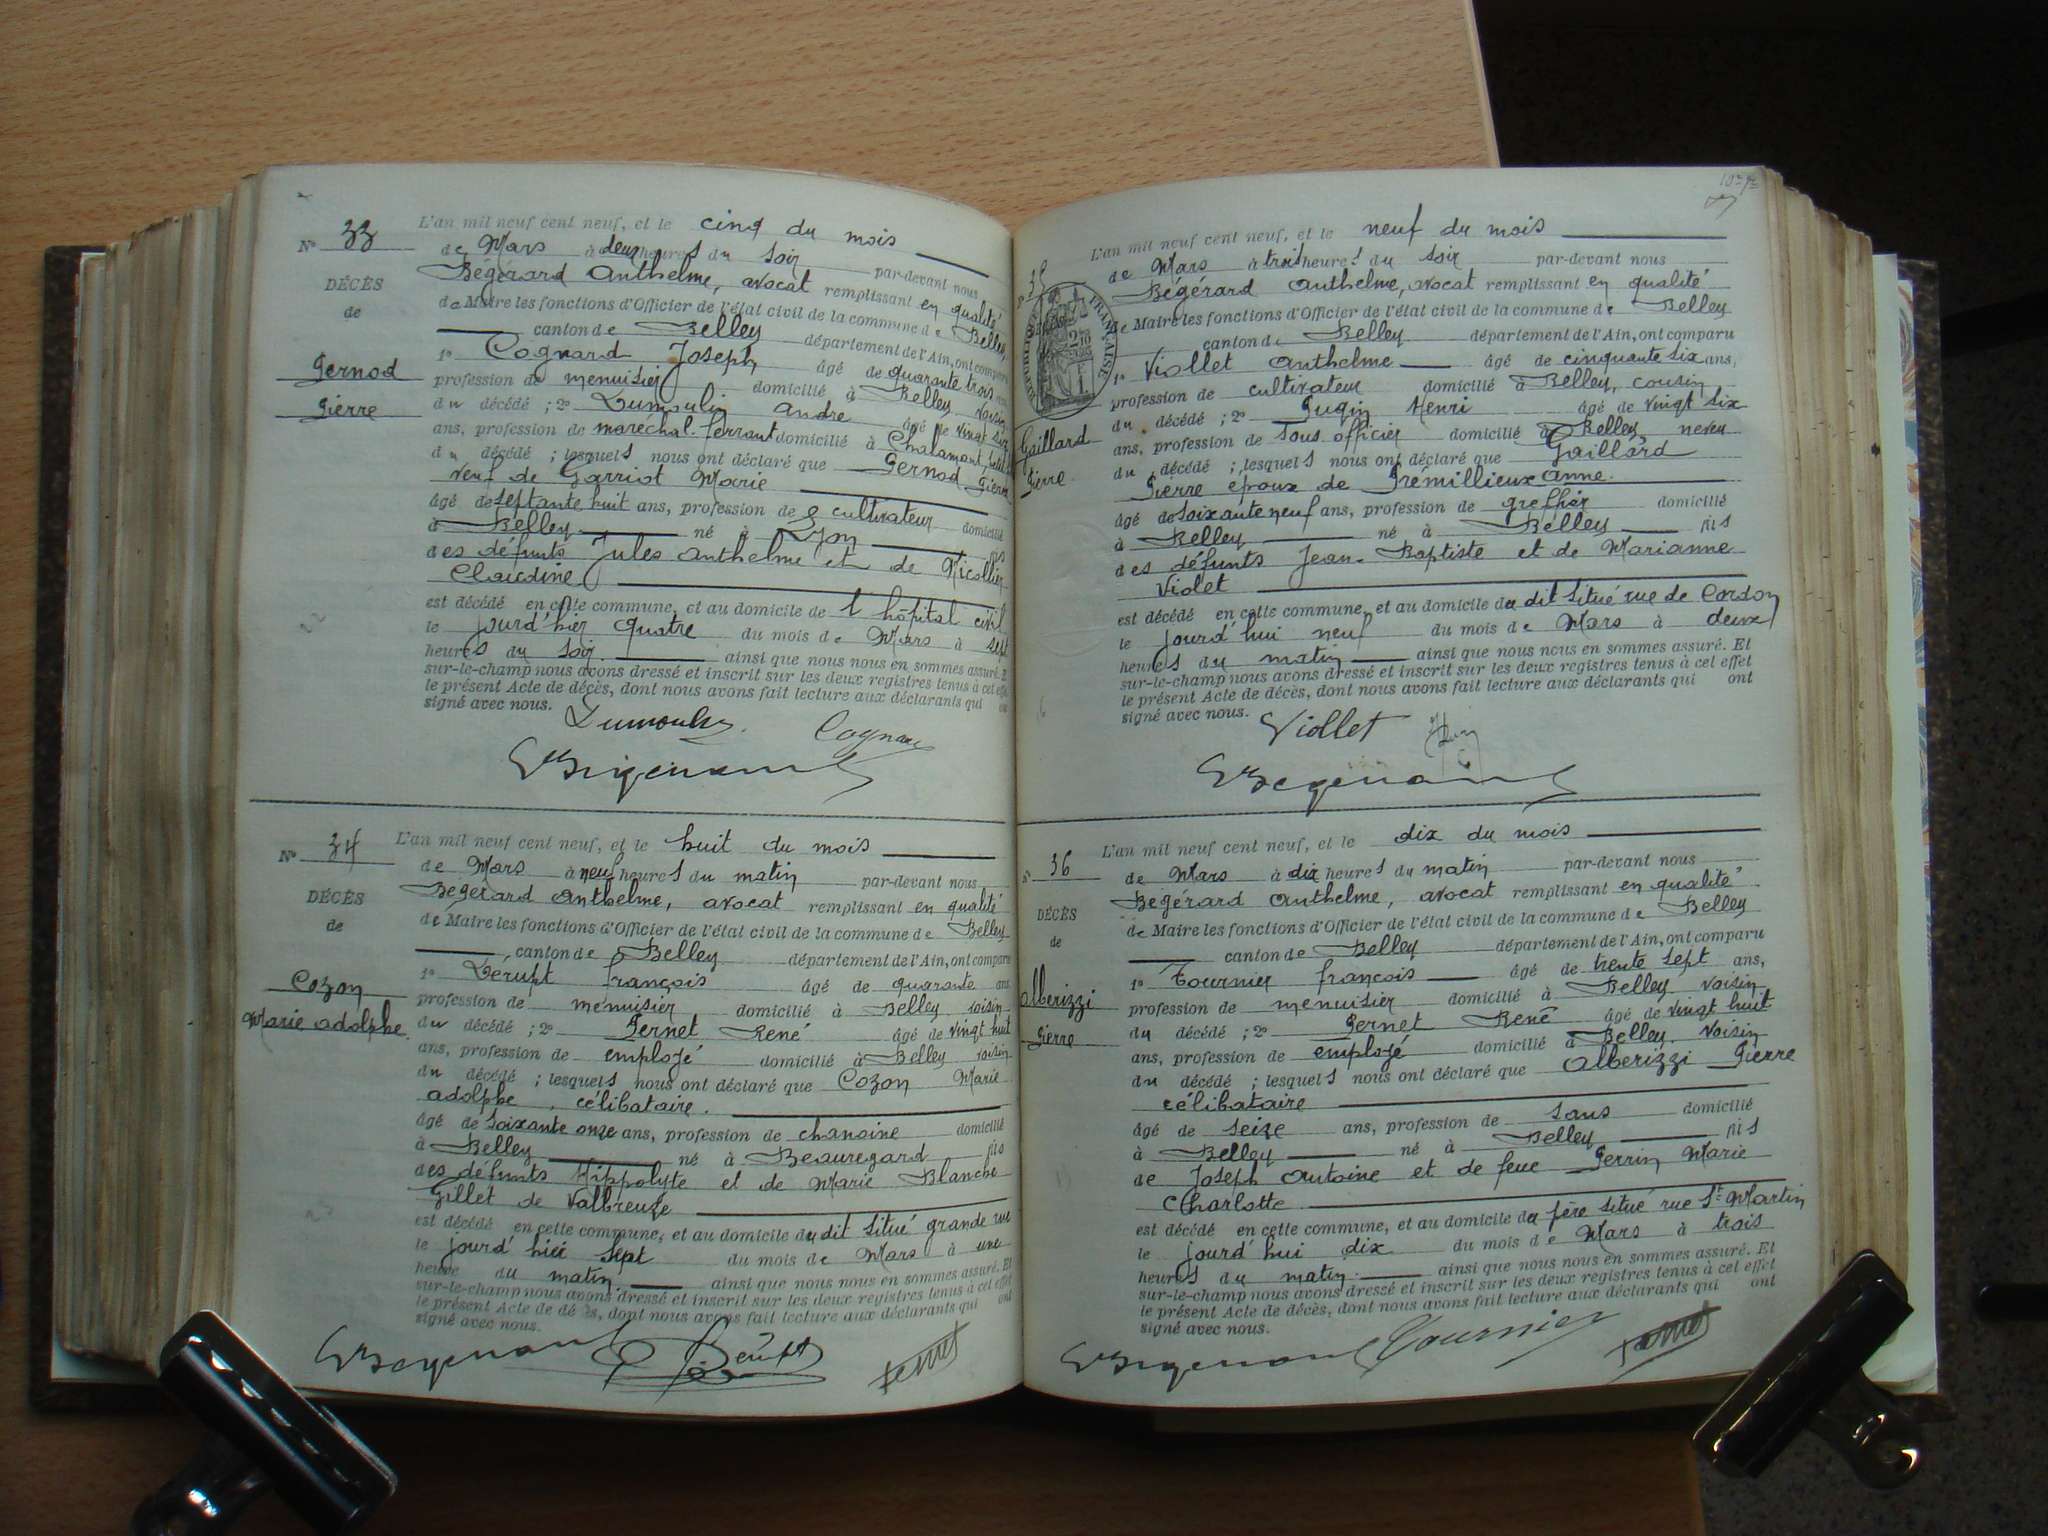 N° 33
DÉCÈS
de
Pernod
Pierre
L'an mil neuf cent neuf, et le cinq du mois
de Mars à deux heures du soir par-devant nous
Bégérard Anthelme, avocat remplissant en qualité
de Maire les fonctions d'Officier de l'état civil de la commune de Belley
canton de Belley département de l'Ain, ont comparu
1° Cognard Joseph âgé de quarante trois ans
profession de menuisier domicilié à Belley voisin
du décédé ; 2° Dumoulin André âgé de vingt six
ans, profession de maréchal ferrant domicilié à Chalamont,
du décédé ; lesquels nous ont déclaré que Pernod Pierre
veuf de Garriot Marie
âgé de septante huit ans, profession de cultivateur domicilié
à Belley né à Lyon fils
des défunts Jules Anthelme et de Nicollier
Claudine
est décédé en cette commune, et au domicile de l'hôpital civil
le jourd'hier quatre du mois de Mars à sept
heures du soir. ainsi que nous nous en sommes assuré. Et
sur-le-champ nous avons dressé et inscrit sur les deux registres tenus à cet effet
le présent Acte de décès, dont nous avons fait lecture aux déclarants qui ont
signé avec nous.
Dumoulin Cognard
N° 34
DÉCÈS
de
Cozon
Marie Adolphe.
L'an mil neuf cent neuf, et le huit du mois
de Mars à neuf heures du matin par-devant nous
Bégérard Anthelme, avocat remplissant en qualité
de Maire les fonctions d'Officier de l'état civil de la commune de Belley
canton de Belley département de l'Ain, ont comparu
1° Dérupt françois âgé de quarante ans
profession de menuisier domicilié à Belley voisin
du décédé ; 2° Pernet René âgé de vingt huit
ans, profession de employé domicilié à Belley voisin
du décédé ; lesquels nous ont déclaré que Cozon Marie
adolphe, célibataire.
âgé de soixante onze ans, profession de chanoine domicilié
à Belley né à Beauregard fils
des défunts Hippolyte et de Marie Blanche
Gillet de Valbreuze
est décédé en cette commune, et au domicile du dit situé grande rue
le jourd'hier sept du mois de Mars à une
heure du matin. ainsi que nous nous en sommes assuré. Et
sur-le-champ nous avons dressé et inscrit sur les deux registres tenus à cet effet
le présent Acte de décès, dont nous avons fait lecture aux déclarants qui ont
signé avec nous.
Dérupt Pernet
N° 35
RÉPUBLIQUE FRANÇAISE
Gaillard
Pierre
L'an mil neuf cent neuf, et le neuf du mois
de Mars à trois heures du soir par-devant nous
Bégérard Anthelme, avocat remplissant en qualité
de Maire les fonctions d'Officier de l'état civil de la commune de Belley
canton de Belley département de l'Ain, ont comparu
1° Viollet Anthelme âgé de cinquante six ans,
profession de cultivateur domicilié à Belley, cousin
du décédé ; 2° Pugin Henri âgé de vingt six
ans, profession de sous officier domicilié à Belley neveu
du décédé ; lesquels nous ont déclaré que Gaillard
Pierre époux de Prémillieux Anne.
âgé de soixante neuf ans, profession de greffier domicilié
à Belley né à Belley fils
des défunts Jean-Baptiste et de Marianne
Violet
est décédé en cette commune, et au domicile du dit situé rue de Cordon
le jourd'hui neuf du mois de Mars à deux
heures du matin ainsi que nous nous en sommes assuré. Et
sur-le-champ nous avons dressé et inscrit sur les deux registres tenus à cet effet
le présent Acte de décès, dont nous avons fait lecture aux déclarants qui ont
signé avec nous.
Viollet
N° 36
DÉCÈS
de
Alberizzi
Pierre
L'an mil neuf cent neuf, et le dix du mois
de Mars à dix heures du matin par-devant nous
Bégérard Anthelme, avocat remplissant en qualité
de Maire les fonctions d'Officier de l'état civil de la commune de Belley
canton de Belley département de l'Ain, ont comparu
1° Tournier françois âgé de trente sept ans,
profession de menuisier domicilié à Belley voisin
du décédé ; 2° Pernet René âgé de vingt huit
ans, profession de employé domicilié à Belley voisin
du décédé ; lesquels nous ont déclaré que Alberizzi Pierre
célibataire
âgé de seize ans, profession de sans domicilié
à Belley né à Belley fils
de Joseph Antoine et de feue Perrin Marie
Charlotte
est décédé en cette commune, et au domicile du père situé rue St Martin
le jourd'hui dix du mois de Mars à trois
heures du matin. ainsi que nous nous en sommes assuré. Et
sur-le-champ nous avons dressé et inscrit sur les deux registres tenus à cet effet
le présent Acte de décès, dont nous avons fait lecture aux déclarants qui ont
signé avec nous.
Tournier Pernet